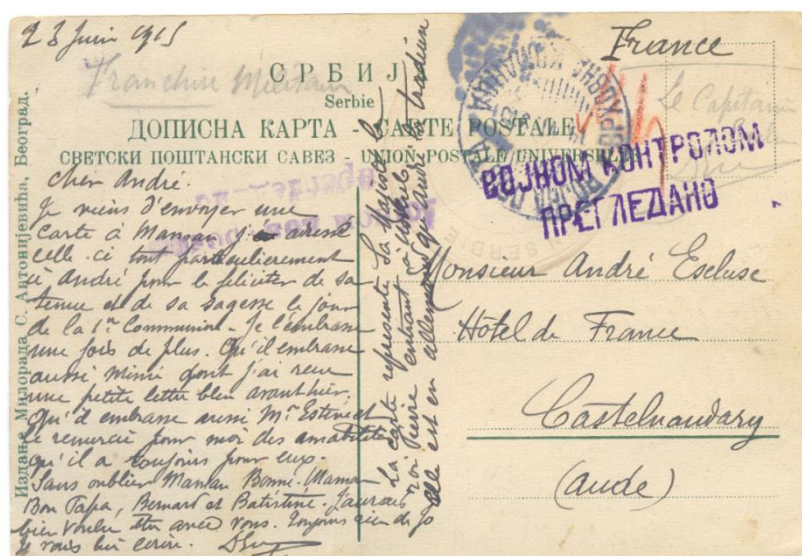 23 Juin 1915
Franchise Militaire
France
Le Capitaine
СРБИЈА
Serbie
ДОПИСНА КАРТА - CARTE POSTALE
СВЕТСКИ ПОШТАНСКИ САВЕЗ - UNION POSTALE UNIVERSELLE
ВОЈНОМ КОНТРОЛОМ
ПРЕГЛЕДАНО
Издање Милорада С. Антонијевића, Београд.
Cher André.
Je viens d'envoyer une
carte à Maman j'adresse
celle-ci tout particulièrement
à André pour le féliciter de sa
tenue et de sa sagesse le jour
de la 1re Communion. Je l'embrasse
une fois de plus. Qu'il embrasse
aussi Mimi dont j'ai reçu
une petite lettre bleu avant hier.
Qu'il embrasse aussi Mr Estève et
le remercie pour moi des amabilités
qu'il a toujours pour eux.
Sans oublier Maman Bonne Maman
Bon Papa, Bernard et Batistine. J'aurais
bien voulu être avec vous. Toujours rien de Jo
Je vais lui écrire.
La carte représente Sa Majesté le
roi Pierre entrant à
elle est en allemand qu'Aude te traduira
Monsieur André Escluse
Hôtel de France
Castelnaudary
(Aude)